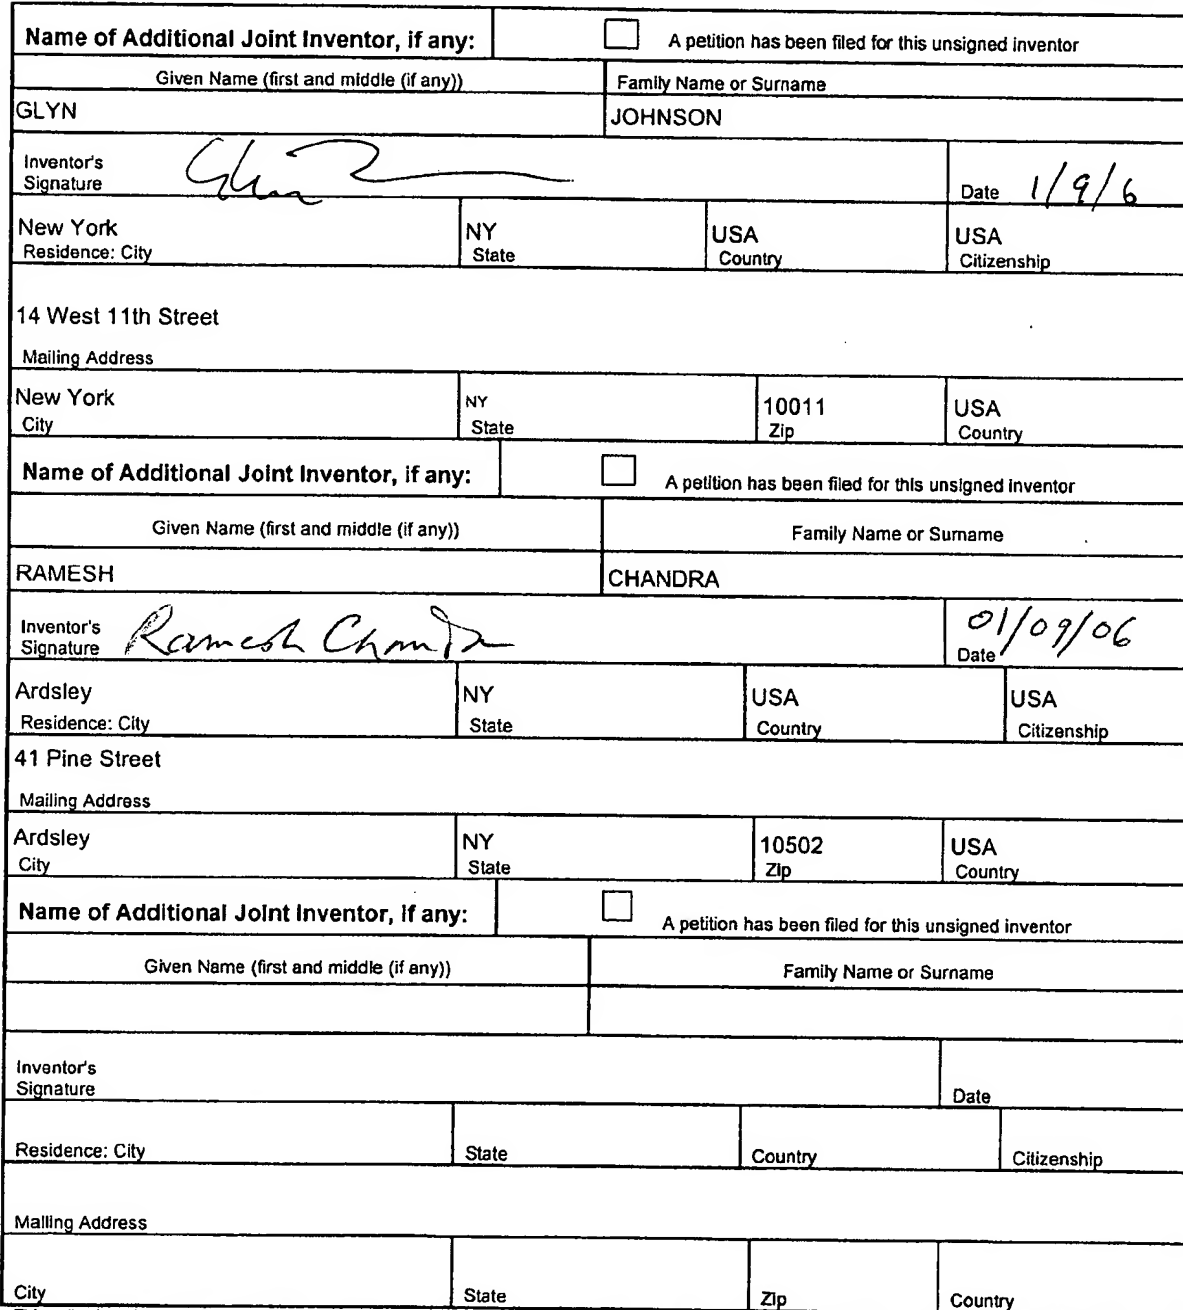 Name of Additional Joint Inventor, if any: A petition has been filed for this unsigned inventor
Given Name (first and middle (if any)) Family Name or Surname
GLYN JOHNSON
Inventor's
Signature Date 1/9/6
New York NY USA USA
Residence: City State Country Citizenship
14 West 11th Street
Mailing Address
New York NY 10011 USA
City State Zip Country
Name of Additional Joint Inventor, if any: A petition has been filed for this unsigned inventor
Given Name (first and middle (if any)) Family Name or Surname
RAMESH CHANDRA
Inventor's
Signature Ramesh Chandra Date 01/09/06
Ardsley NY USA USA
Residence: City State Country Citizenship
41 Pine Street
Mailing Address
Ardsley NY 10502 USA
City State Zip Country
Name of Additional Joint Inventor, if any: A petition has been filed for this unsigned inventor
Given Name (first and middle (if any)) Family Name or Surname
Inventor's
Signature Date
Residence: City State Country Citizenship
Mailing Address
City State Zip Country